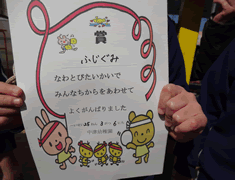 賞
ふじぐみ
なわとびたいかいで
みんなちからをあわせて
よくがんばりました
中津幼稚園